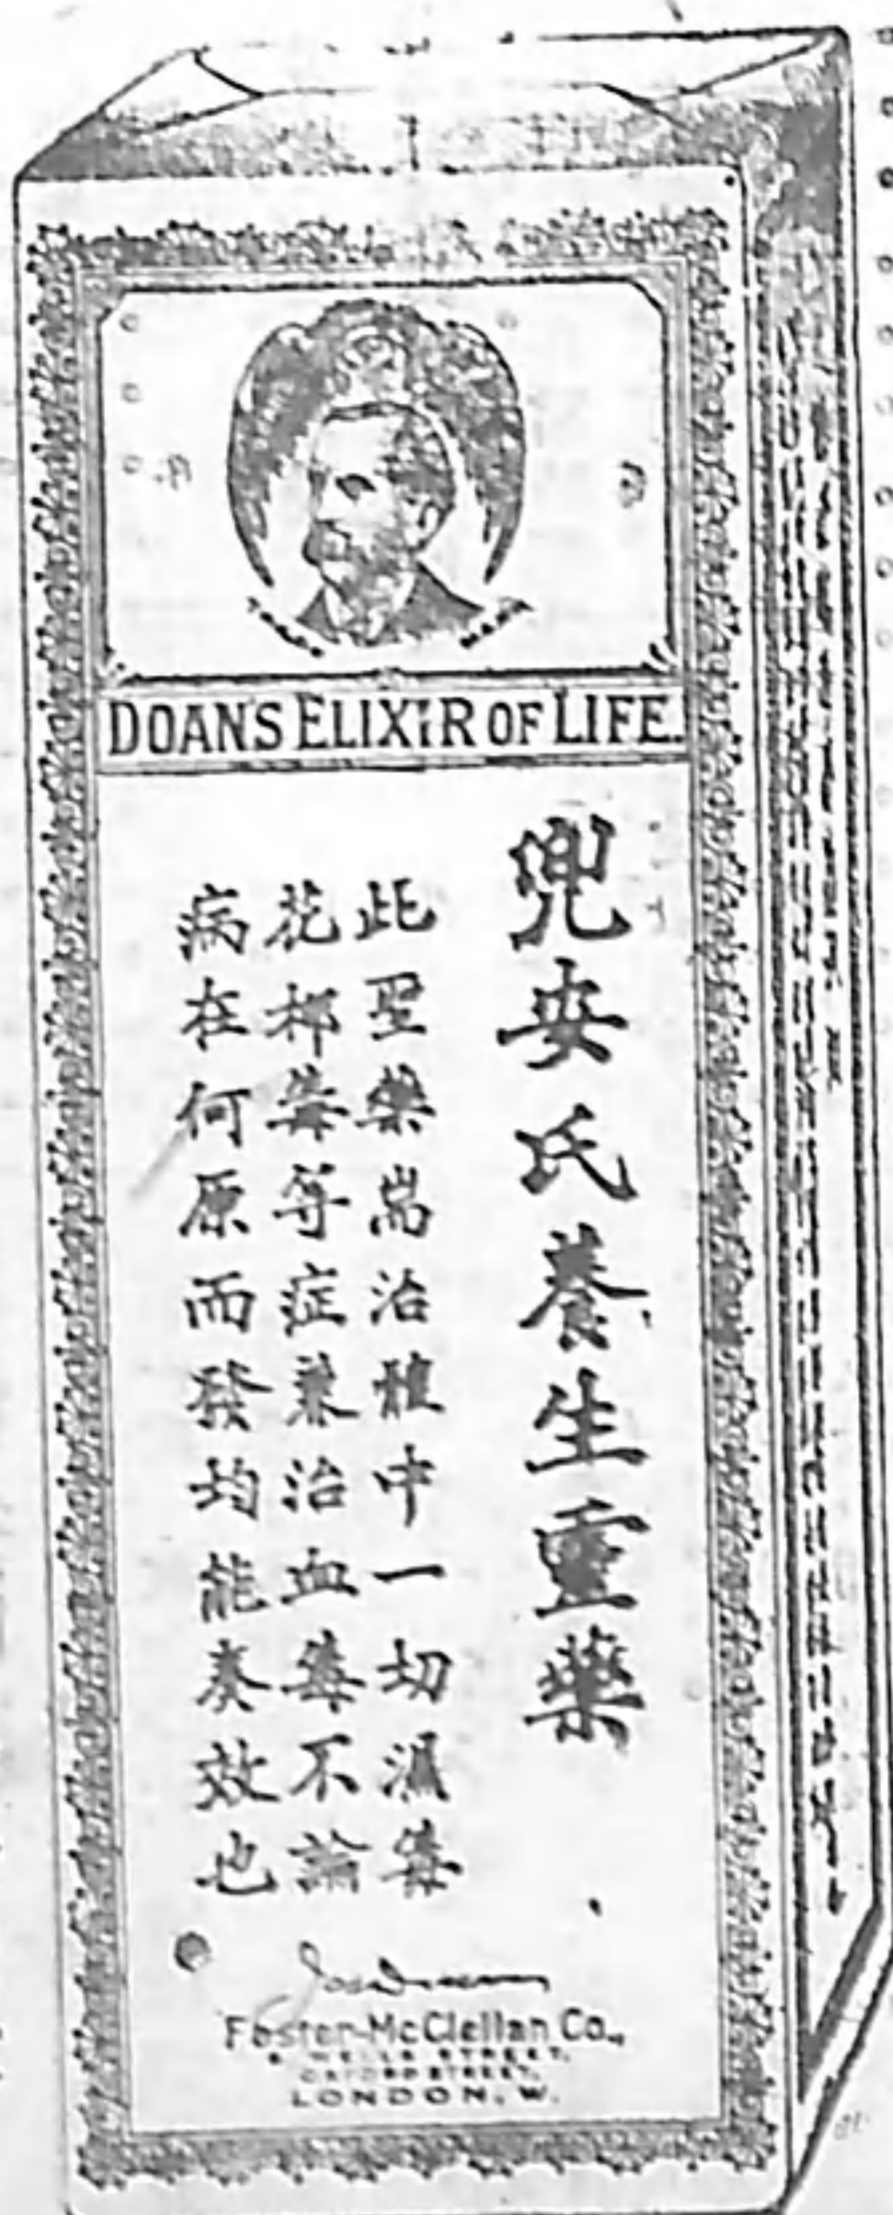 TRADE MARK
DOAN'S ELIXIR OF LIFE.
兜安氏養生靈藥
此聖藥耑治體中一切濕毒
花柳毒等症兼治血毒不論
病在何原而發均能奏效也
Foster-McClellan Co.,
8 WELLS STREET,
OXFORD STREET,
LONDON, W.